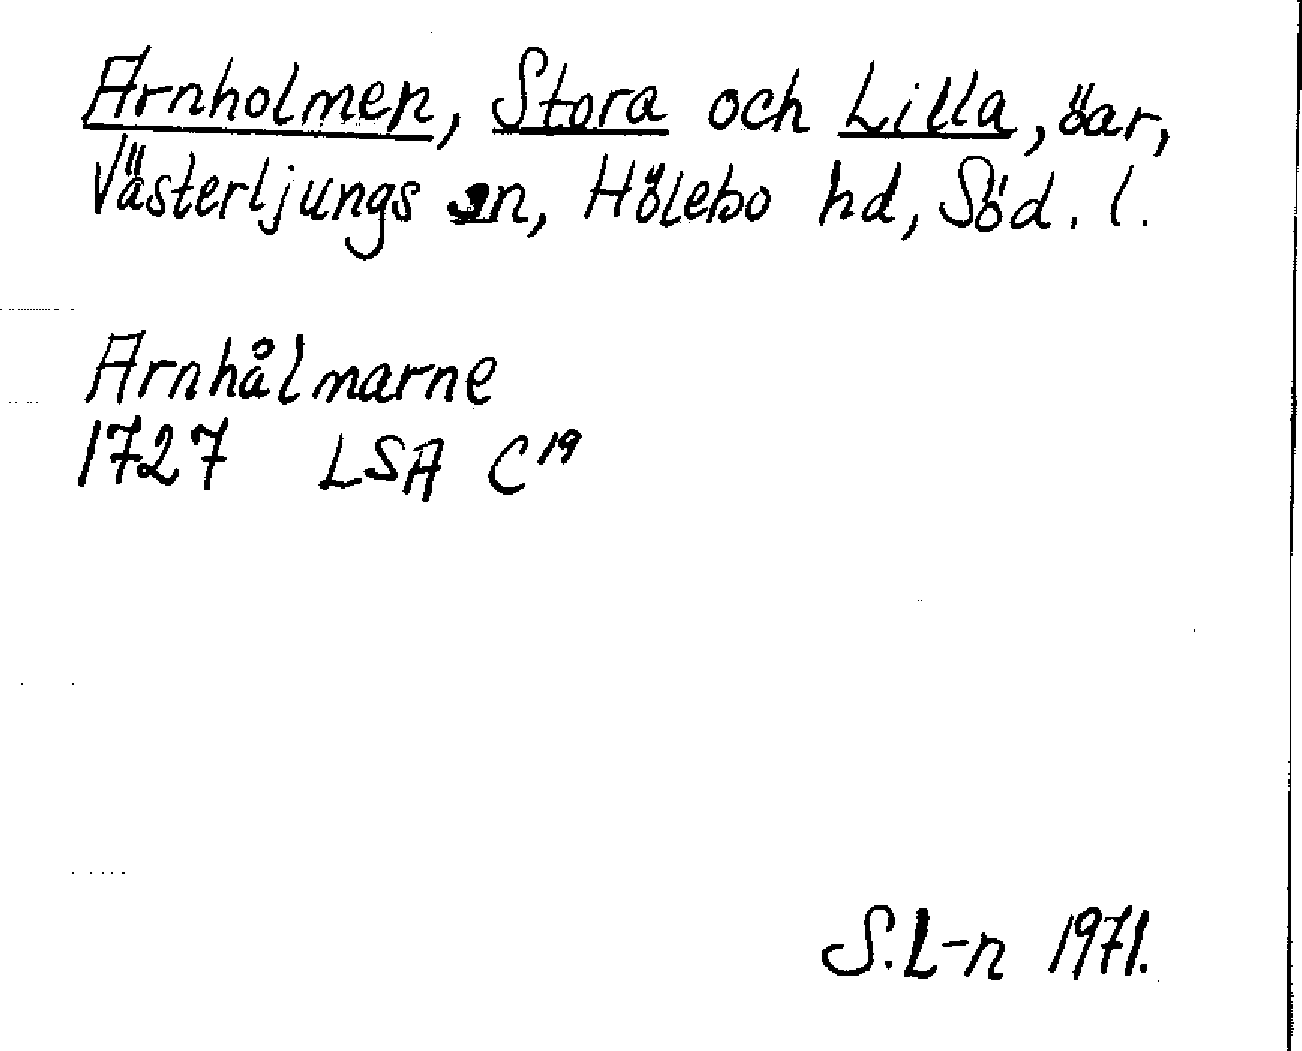 Arnholmen, Stora och Lilla, öar,
Västerljungs sn, Hölebo hd, Söd. l.
Arnhålmarne
1727 LSA C19
S.L-n 1971.